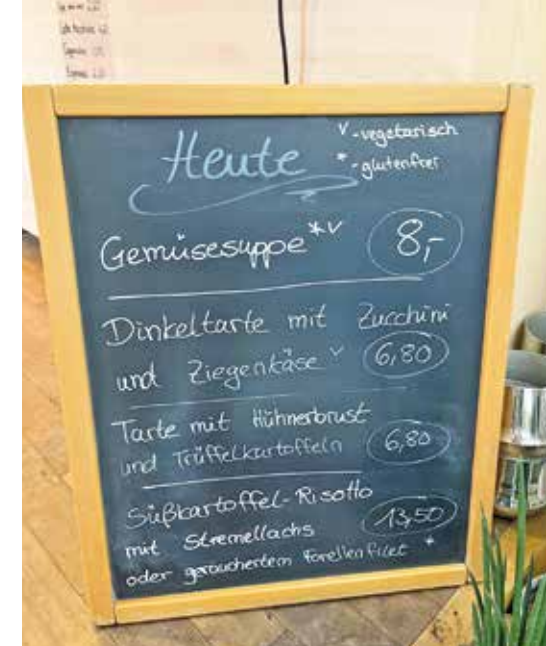 Heute
v - vegetarisch
* - glutenfrei
Gemüsesuppe *v 8,-
Dinkeltarte mit Zucchini
und Ziegenkäse v 6,80
Tarte mit Hühnerbrust
und Trüffelkartoffeln 6,80
Süßkartoffel-Risotto
mit Stremellachs 13,50
oder geräuchertem Forellenfilet *